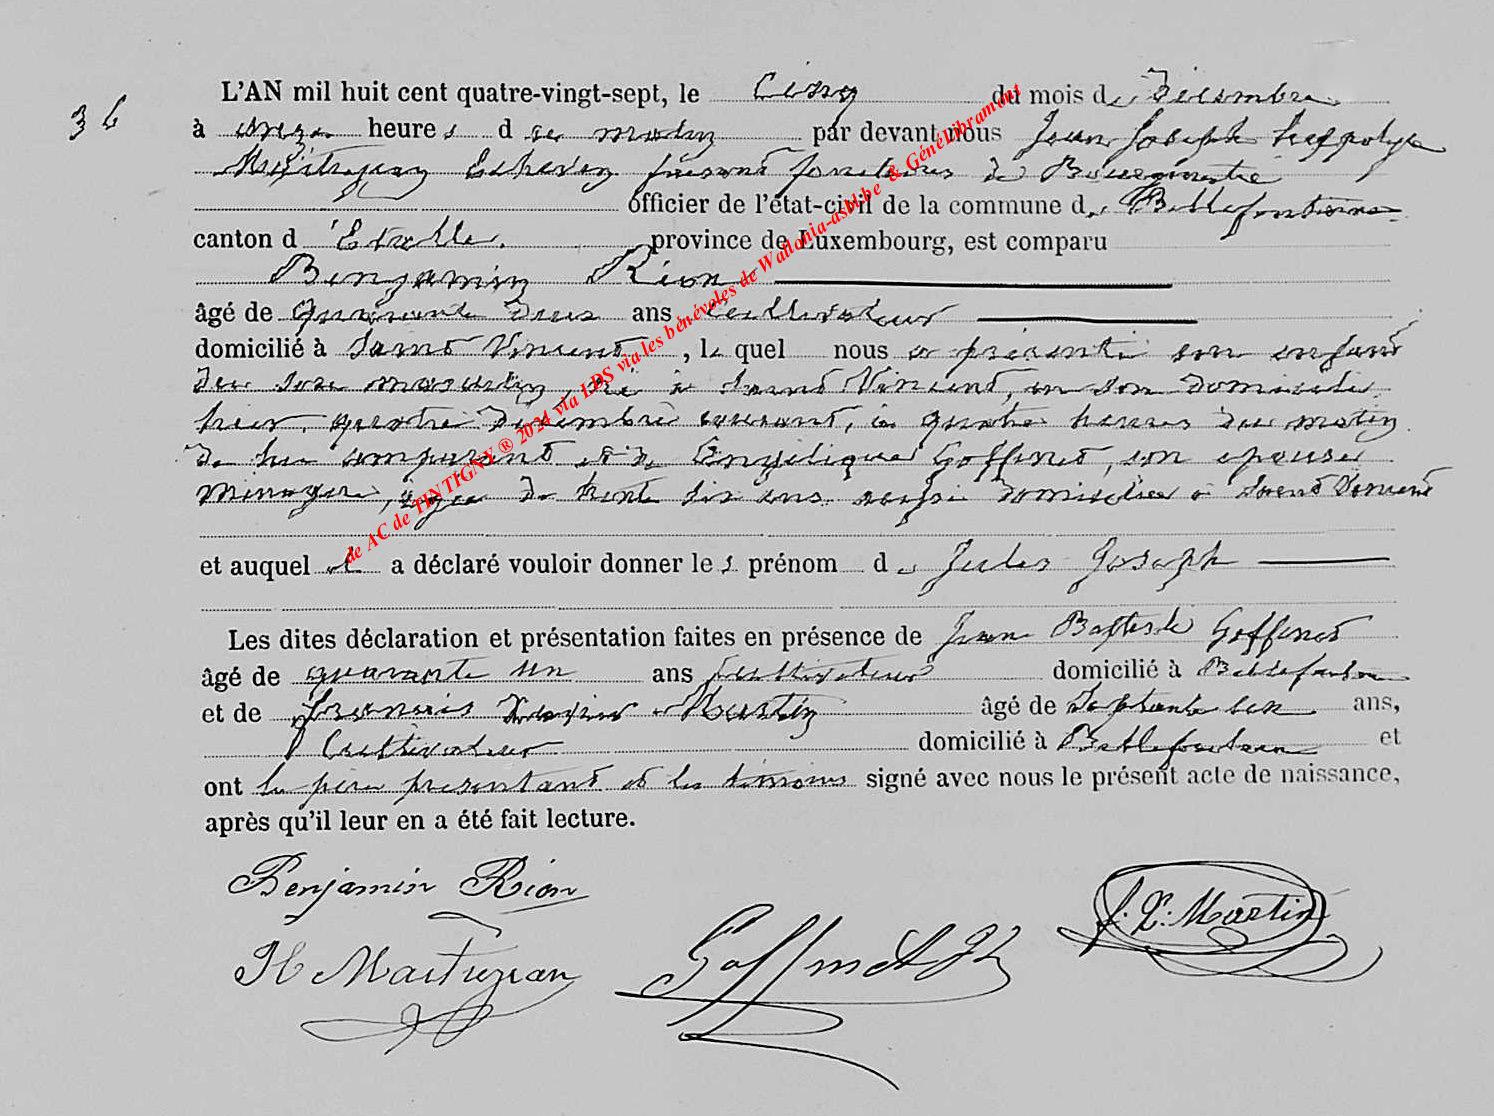 36
L'AN mil huit cent quatre-vingt-sept, le Cinq du mois de Décembre
à onze heures du matin par devant nous Jean Joseph Hyppolyte
Maitrejean Echevin faisant fonctions de Bourgmestre
officier de l'état-civil de la commune de Bellefontaine
canton d'Etalle. province de Luxembourg, est comparu
Benjamin Rion
âgé de quarante deux ans Cultivateur
domicilié à Saint Vincent, lequel nous a présenté son enfant
du sexe masculin, né à Saint Vincent, en son domicile
hier, quatre décembre courant, à quatre heures du matin
de lui comparant et de Angélique Goffinet, son épouse
Ménagère, âgée de trente six ans aussi domiciliée à Saint Vincent
et auquel il a déclaré vouloir donner les prénom de Jules Joseph
Les dites déclaration et présentation faites en présence de Jean Baptiste Goffinet
âgé de quarante un ans Cultivateur domicilié à Bellefontaine
et de François Xavier Martin âgé de Septante ans,
Cultivateur domicilié à Bellefontaine et
ont le père présentant et les témoins signé avec nous le présent acte de naissance,
après qu'il leur en a été fait lecture.
Benjamin Rion
H Maitrejean
Goffinet J B
f. X. Martin
de AC de TINTIGNY ® 2024 via LDS via les bénévoles de Wallonia-asbl.be & GénéLibramont